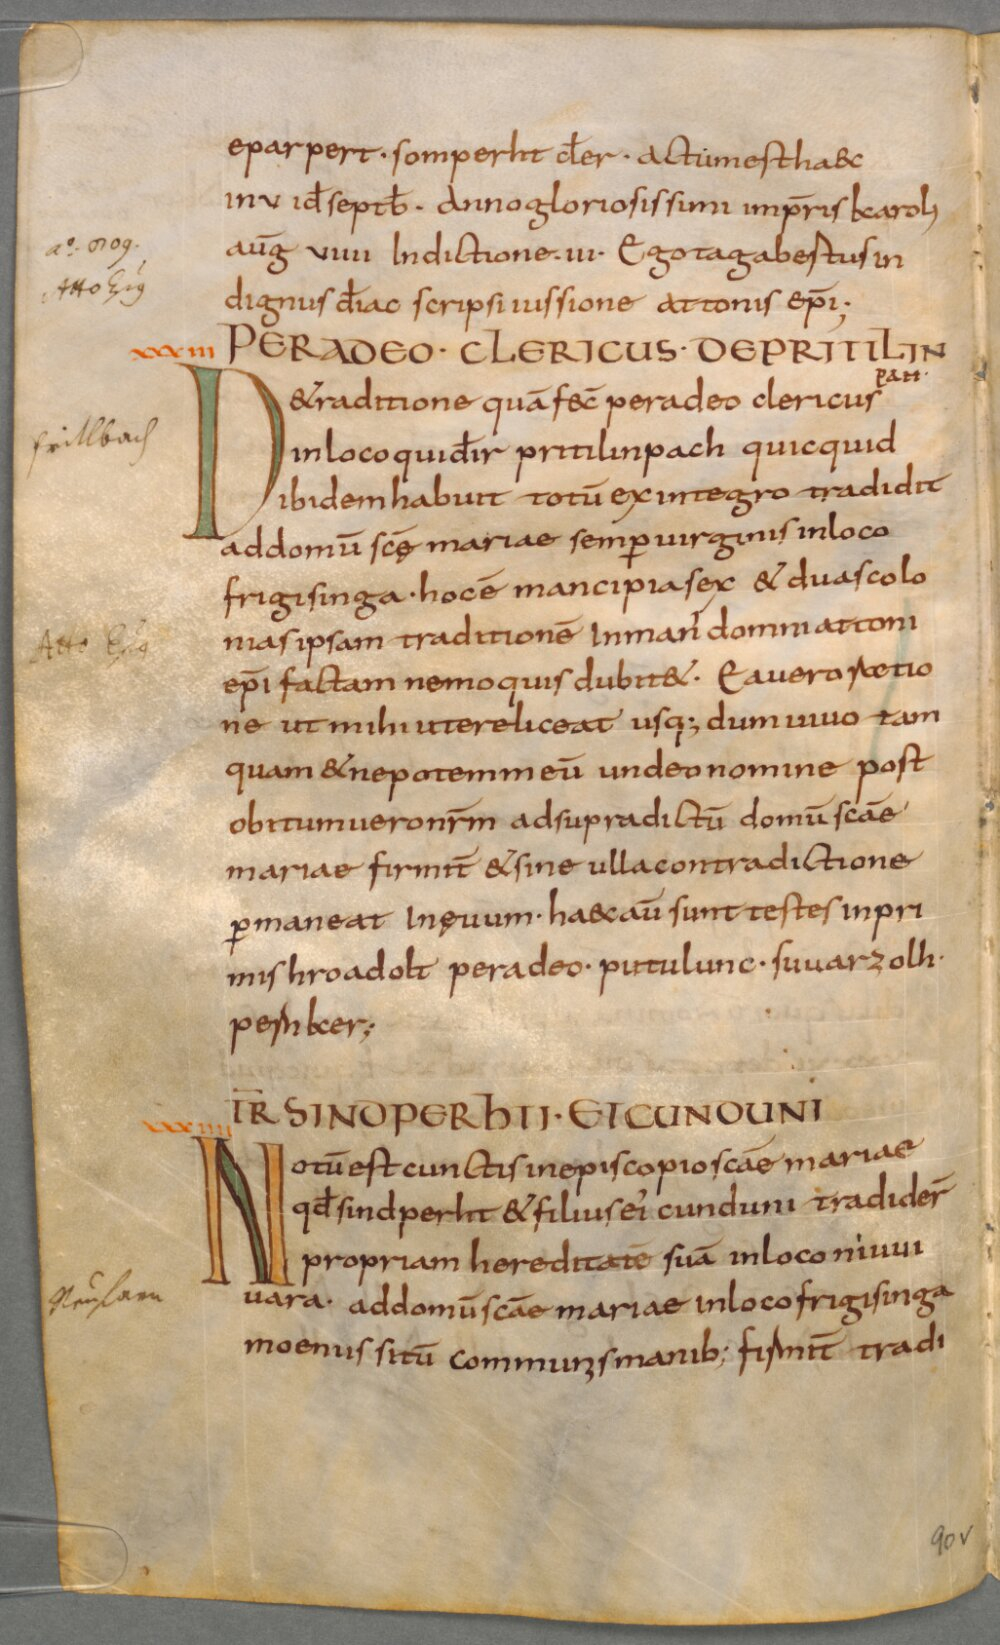 eparpert · somperht cl̄er · actum est haec
in v id̄ septb̄ · Anno gloriosissimi imp̄ris karoli
aūg viiii Indictione · iii · Ego tagabestus in
dignus d̄iac scripsi iussione attonis ep̄i ;
a.º 809.
xxxiii PERADEO · CLERICUS · DE PRITILIN
pah ·
De traditione quā fec̄ peradeo clericus
in loco qui d̄ir pritilinpach quicquid
Frillbach
ibidem habuit totū ex integro tradidit
ad domū scę̄ mariae semp̱ uirginis in loco
frigisinga · hoc ē mancipia sex & duas colo
nias ipsam traditionē In man̄ domni attoni
ep̄i factam nemo quis dubit& · Ea uero ratio
ne ut mihi utere liceat usq; dum uiuo tam
quam & nepotem meū undeo nomine post
obitum uero nr̄m ad supradictū domū scāe
mariae firmit̄ & sine ulla contradictione
p̱maneat In ęuum · haec aū sunt testes in pri
mis hroadolt peradeo · putulunc · suuarzolh ·
pernker ;
xxxiiii IT̄R SINDPERHTI · ET CUNDUNI
Notū est cunctis in episcopio scāe mariae
qd̄ sindperht & filius ei cunduni tradider̄
propriam hereditatē suā in loco niuui
uara · ad domū scāe mariae In loco frigisinga
moenus sitū communis manib; firmit̄ tradi
90v